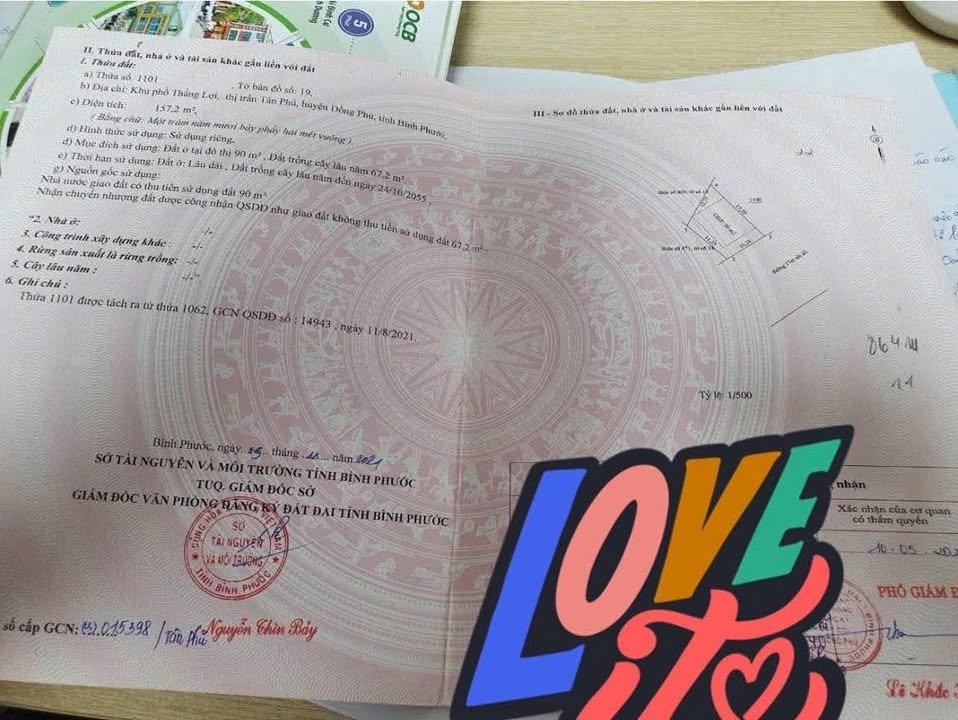 OCB
5
II. Thửa đất, nhà ở và tài sản khác gắn liền với đất
1. Thửa đất:
a) Thửa số: 1101 , Tờ bản đồ số: 19,
b) Địa chỉ: Khu phố Thắng Lợi, thị trấn Tân Phú, huyện Đồng Phú, tỉnh Bình Phước.
c) Diện tích: 157.2 m²,
( Bằng chữ: Một trăm năm mươi bảy phẩy hai mét vuông ).
d) Hình thức sử dụng: Sử dụng riêng,
đ) Mục đích sử dụng: Đất ở tại đô thị 90 m² , Đất trồng cây lâu năm 67.2 m²
e) Thời hạn sử dụng: Đất ở: Lâu dài , Đất trồng cây lâu năm đến ngày 24/10/2055
g) Nguồn gốc sử dụng:
Nhà nước giao đất có thu tiền sử dụng đất 90 m²
Nhận chuyển nhượng đất được công nhận QSDĐ như giao đất không thu tiền sử dụng đất 67.2 m².
"2. Nhà ở: -/-
3. Công trình xây dựng khác : -/-
4. Rừng sản xuất là rừng trồng: -/-
5. Cây lâu năm : -/-"
6. Ghi chú :
Thửa 1101 được tách ra từ thửa 1062, GCN QSDĐ số : 14943 , ngày 11/8/2021.
Bình Phước, ngày tháng năm 2021
SỞ TÀI NGUYÊN VÀ MÔI TRƯỜNG TỈNH BÌNH PHƯỚC
TUQ. GIÁM ĐỐC SỞ
GIÁM ĐỐC VĂN PHÒNG ĐĂNG KÝ ĐẤT ĐAI TỈNH BÌNH PHƯỚC
SỞ
TÀI NGUYÊN
VÀ MÔI TRƯỜNG
TỈNH BÌNH PHƯỚC
số cấp GCN: 015398 /Tân Phú
Nguyễn Thìn Bảy
III - Sơ đồ thửa đất, nhà ở và tài sản khác gắn liền với đất
1100
864
Tỷ lệ: 1/500
nhận
Xác nhận của cơ quan
có thẩm quyền
10-05
PHÓ GIÁM Đ
Lê Khắc
LOVE
iT